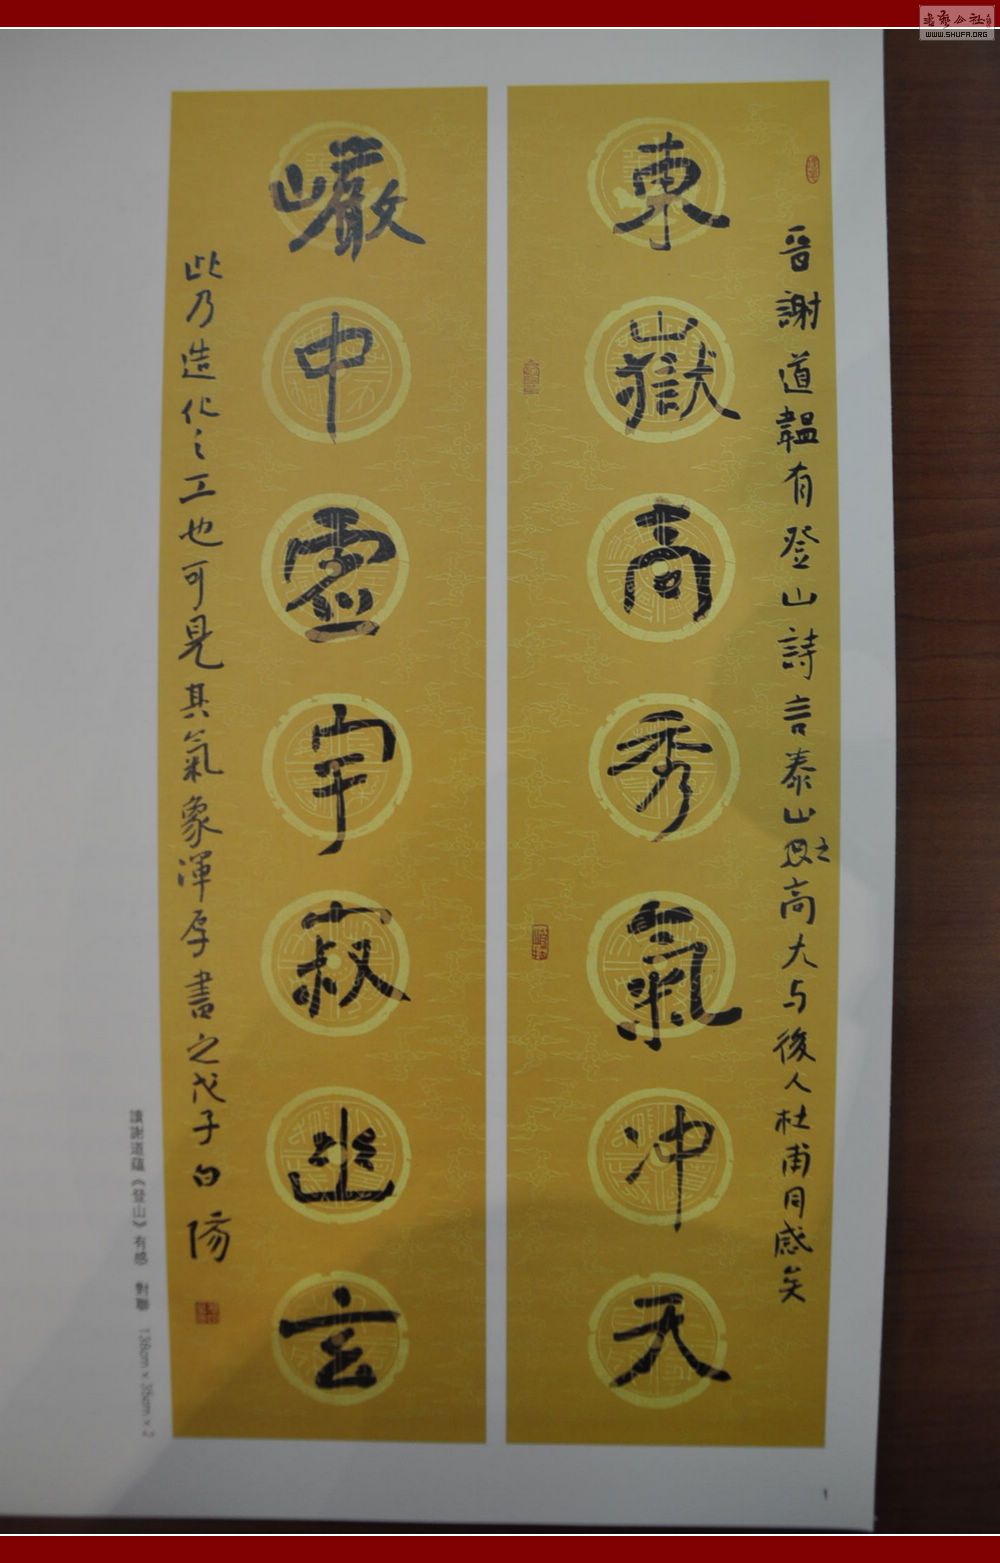 晉謝道韞有登山詩言泰山之高大与後人杜甫同感矣
東嶽高秀氣冲天
巖中虛宇寂幽玄
此乃造化之工也可見其氣象渾厚書之戊子白陽
讀謝道蘊《登山》有感 對聯 138cm×35cm×2
1
WWW.SHUFA.ORG